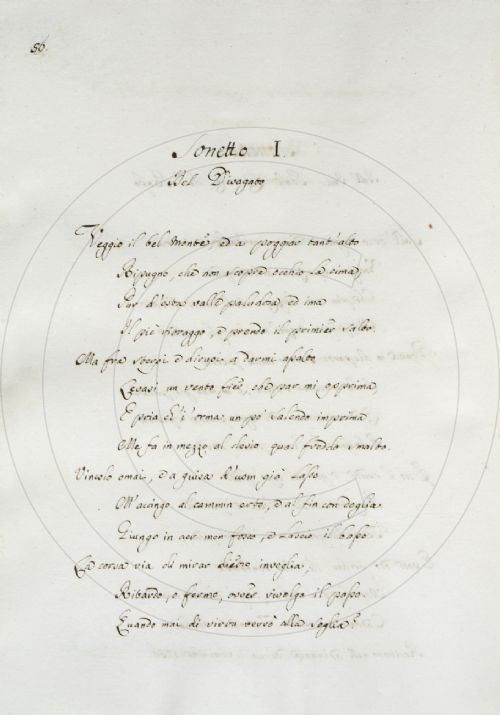 86.
Sonetto I.
Del Divagato
Veggio il bel monte, ed a poggiar tant'alto
Ripugno, che non scopre occhio la cima,
Pur d'esta valle paludosa, ed ima
Il piè ritraggo, e prendo il primier salto.
Ma fra sterpi e a darmi assalto
Levasi un vento fier, che par mi opprima,
E pria ch'i' orma un po' salendo imprima
Me fa in mezzo al qual freddo smalto.
Vincolo omai, e a guisa d'uom già lasso
M'accingo al cammin erto, e al fin con doglia
Giungo in aer men fosco, e lascio il basso
La corsa via di mirar invoglia
Ritardo, o fermo, over rivolga il passo
Quando mai di virtù verrò alla soglia?